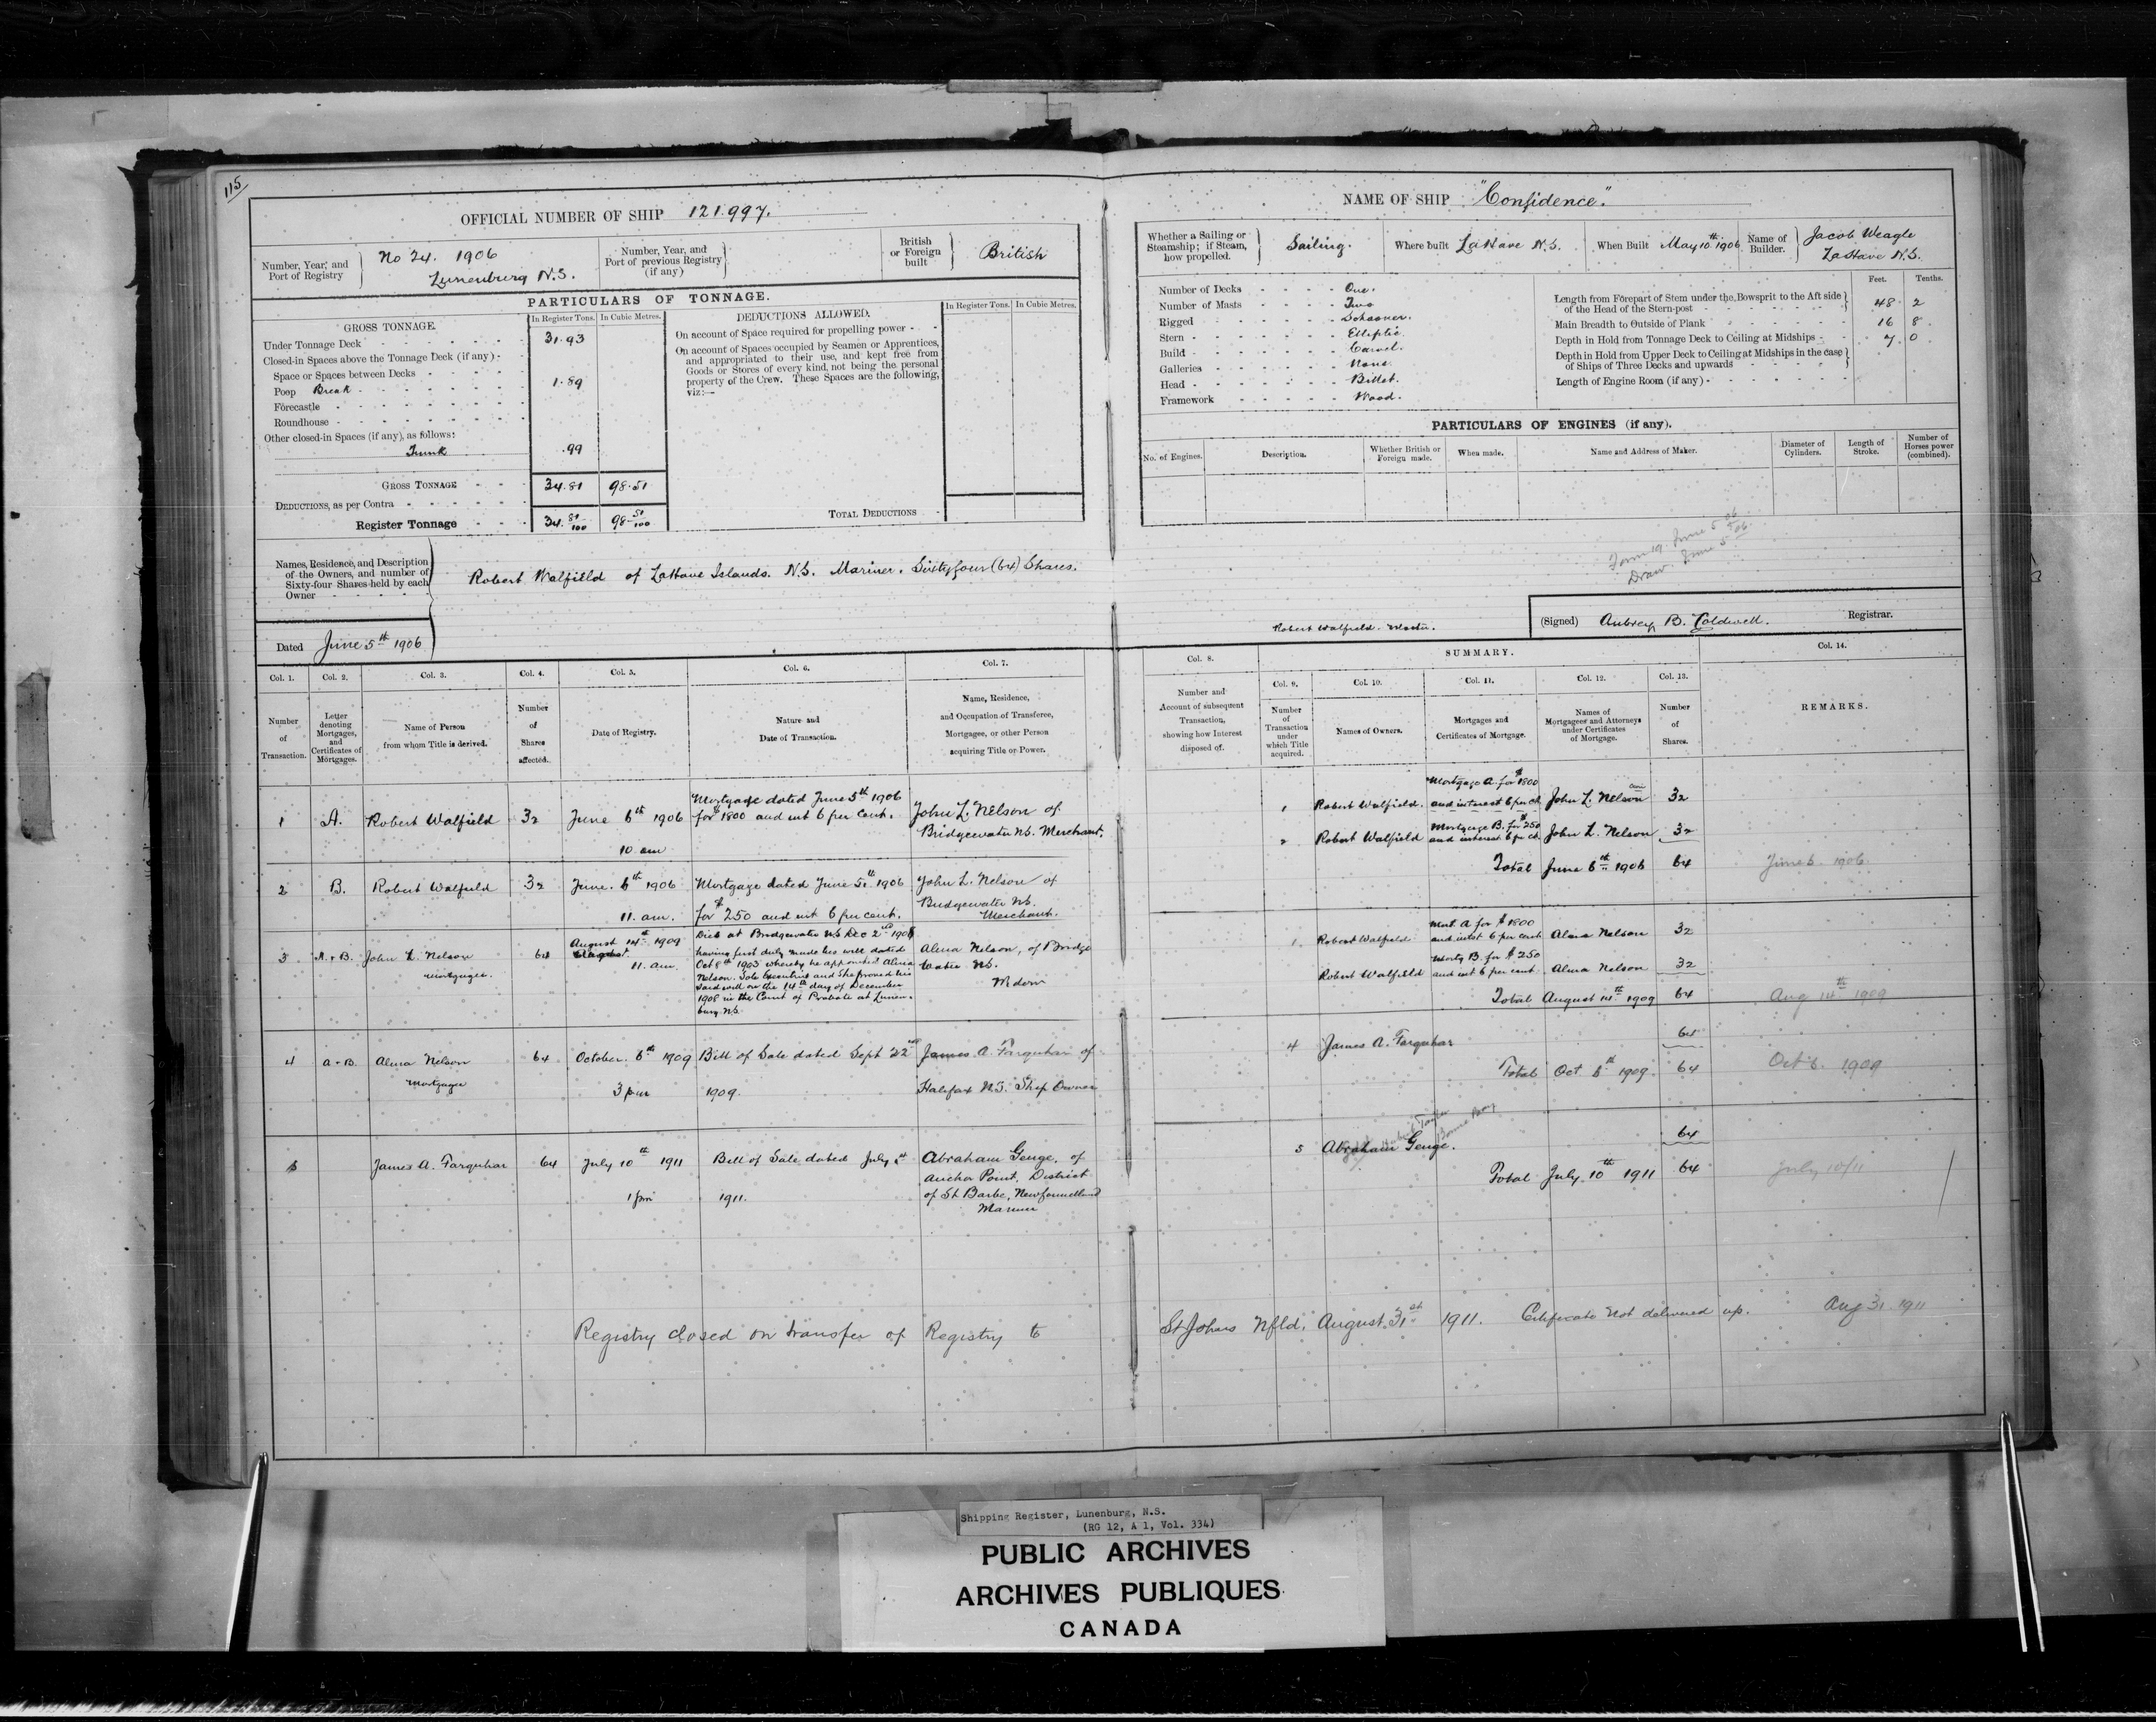 115
OFFICIAL NUMBER OF SHIP 121.997.
Number, Year, and Port of Registry
No 24. 1906
Lunenburg N.S.
Number, Year, and Port of previous Registry (if any)
British or Foreign built
British
PARTICULARS OF TONNAGE.
GROSS TONNAGE.
In Register Tons.
In Cubic Metres.
Under Tonnage Deck 31.93
Closed-in Spaces above the Tonnage Deck (if any)
Space or Spaces between Decks
Poop Break 1.89
Forecastle
Roundhouse
Other closed-in Spaces (if any), as follows:
Trunk .99
GROSS TONNAGE 34.81 98.51
DEDUCTIONS, as per Contra
Register Tonnage 34.81/100 98 51/100
DEDUCTIONS ALLOWED.
In Register Tons.
In Cubic Metres.
On account of Space required for propelling power
On account of Spaces occupied by Seamen or Apprentices,
and appropriated to their use, and kept free from
Goods or Stores of every kind, not being the personal
property of the Crew. These Spaces are the following,
viz:—
TOTAL DEDUCTIONS
Names, Residence, and Description
of the Owners, and number of
Sixty-four Shares held by each
Owner
Robert Walfield of LaHave Islands. N.S. Mariner. Sixtyfour (64) Shares.
Dated June 5th 1906
NAME OF SHIP "Confidence."
Whether a Sailing or Steamship; if Steam, how propelled.
Sailing.
Where built LaHave N.S.
When Built May 10th 1906
Name of Builder.
Jacob Weagle
LaHave N.S.
Number of Decks One.
Number of Masts Two
Rigged Schooner.
Stern Elliptic.
Build Carvel.
Galleries None
Head Billet.
Framework Wood.
Feet. Tenths.
Length from Forepart of Stem under the Bowsprit to the Aft side
of the Head of the Stern-post 48. 2
Main Breadth to Outside of Plank 16 8.
Depth in Hold from Tonnage Deck to Ceiling at Midships 7. 0.
Depth in Hold from Upper Deck to Ceiling at Midships in the case
of Ships of Three Decks and upwards
Length of Engine Room (if any)
PARTICULARS OF ENGINES (if any).
No. of Engines.
Description.
Whether British or Foreign made.
When made.
Name and Address of Maker.
Diameter of Cylinders.
Length of Stroke.
Number of Horses power (combined).
Form 19 June 5 06
Draw. June 5 06.
Robert Walfield. Master.
(Signed) Aubrey B. Caldwell. Registrar.
Col. 1. Col. 2. Col. 3. Col. 4. Col. 5. Col. 6. Col. 7.
Number of Transaction.
Letter denoting Mortgages, and Certificates of Mortgages.
Name of Person from whom Title is derived.
Number of Shares affected.
Date of Registry.
Nature and Date of Transaction.
Name, Residence, and Occupation of Transferee, Mortgagee, or other Person acquiring Title or Power.
Col. 8.
Number and Account of subsequent Transaction, showing how Interest disposed of.
SUMMARY.
Col. 9. Col. 10. Col. 11. Col. 12. Col. 13.
Number of Transaction under which Title acquired.
Names of Owners.
Mortgages and Certificates of Mortgage.
Names of Mortgagees and Attorneys under Certificates of Mortgage.
Number of Shares.
Col. 14.
REMARKS.
1 A. Robert Walfield 32 June 6th 1906
10 am
Mortgage dated June 5th 1906
for $1800 and int 6 per cent.
John L. Nelson of
Bridgewater NS. Merchant.
2 B. Robert Walfield 32 June. 6th 1906
11. am.
Mortgage dated June 5th 1906
for $250 and int 6 per cent.
John L. Nelson of
Bridgewater NS.
Merchant.
3 A+B. John L. Nelson
mortgagee.
64
August 14th 1909
August
11. am.
Died at Bridgewater NS Dec 2nd 1908
having first duly made his will dated
Oct 9th 1903 whereby he appointed Alma
Nelson. Sole Executrix and She proved his
said will on the 14th day of December
1908 in the Court of Probate at Lunen-
burg NS.
Alma Nelson, of Bridge
Water NS.
Widow
4 A+B. Alma Nelson
mortgagee
64 October. 6th 1909
3 pm
Bill of Sale dated Sept 22nd
1909.
James A. Farquhar of
Halifax N.S. Ship Owner
5 James A. Farquhar 64 July 10th 1911
1 pm
Bill of Sale dated July 1st
1911.
Abraham Genge, of
Anchor Point, District
of St Barbe, Newfoundland
Mariner
1 Robert Walfield. Mortgage A. for $1800
and interest 6 per ct. John L. Nelson 32
2 Robert Walfield Mortgage B. for $250
and interest 6 per ct. John L. Nelson 32
Total June 6th 1906 64 June 6. 1906.
1. Robert Walfield Mort. A for $1800
and intst 6 per cent Alma Nelson 32
Robert Walfield Mortg B. for $250
and int 6 per cent. Alma Nelson 32
Total August 14th 1909 64 Aug 14th 1909
4 James A. Farquhar 64
Total Oct 6th 1909. 64 Oct 6. 1909
5 Abraham Genge. 64
Bonne Bay
Total July 10th 1911 64 July 10/11
Registry closed on transfer of Registry to St Johns Nfld. August 31st 1911. Certificate Not delivered up. Aug 31 1911
Shipping Register, Lunenburg, N.S.
(RG 12, A 1, Vol. 334)
PUBLIC ARCHIVES
ARCHIVES PUBLIQUES
CANADA